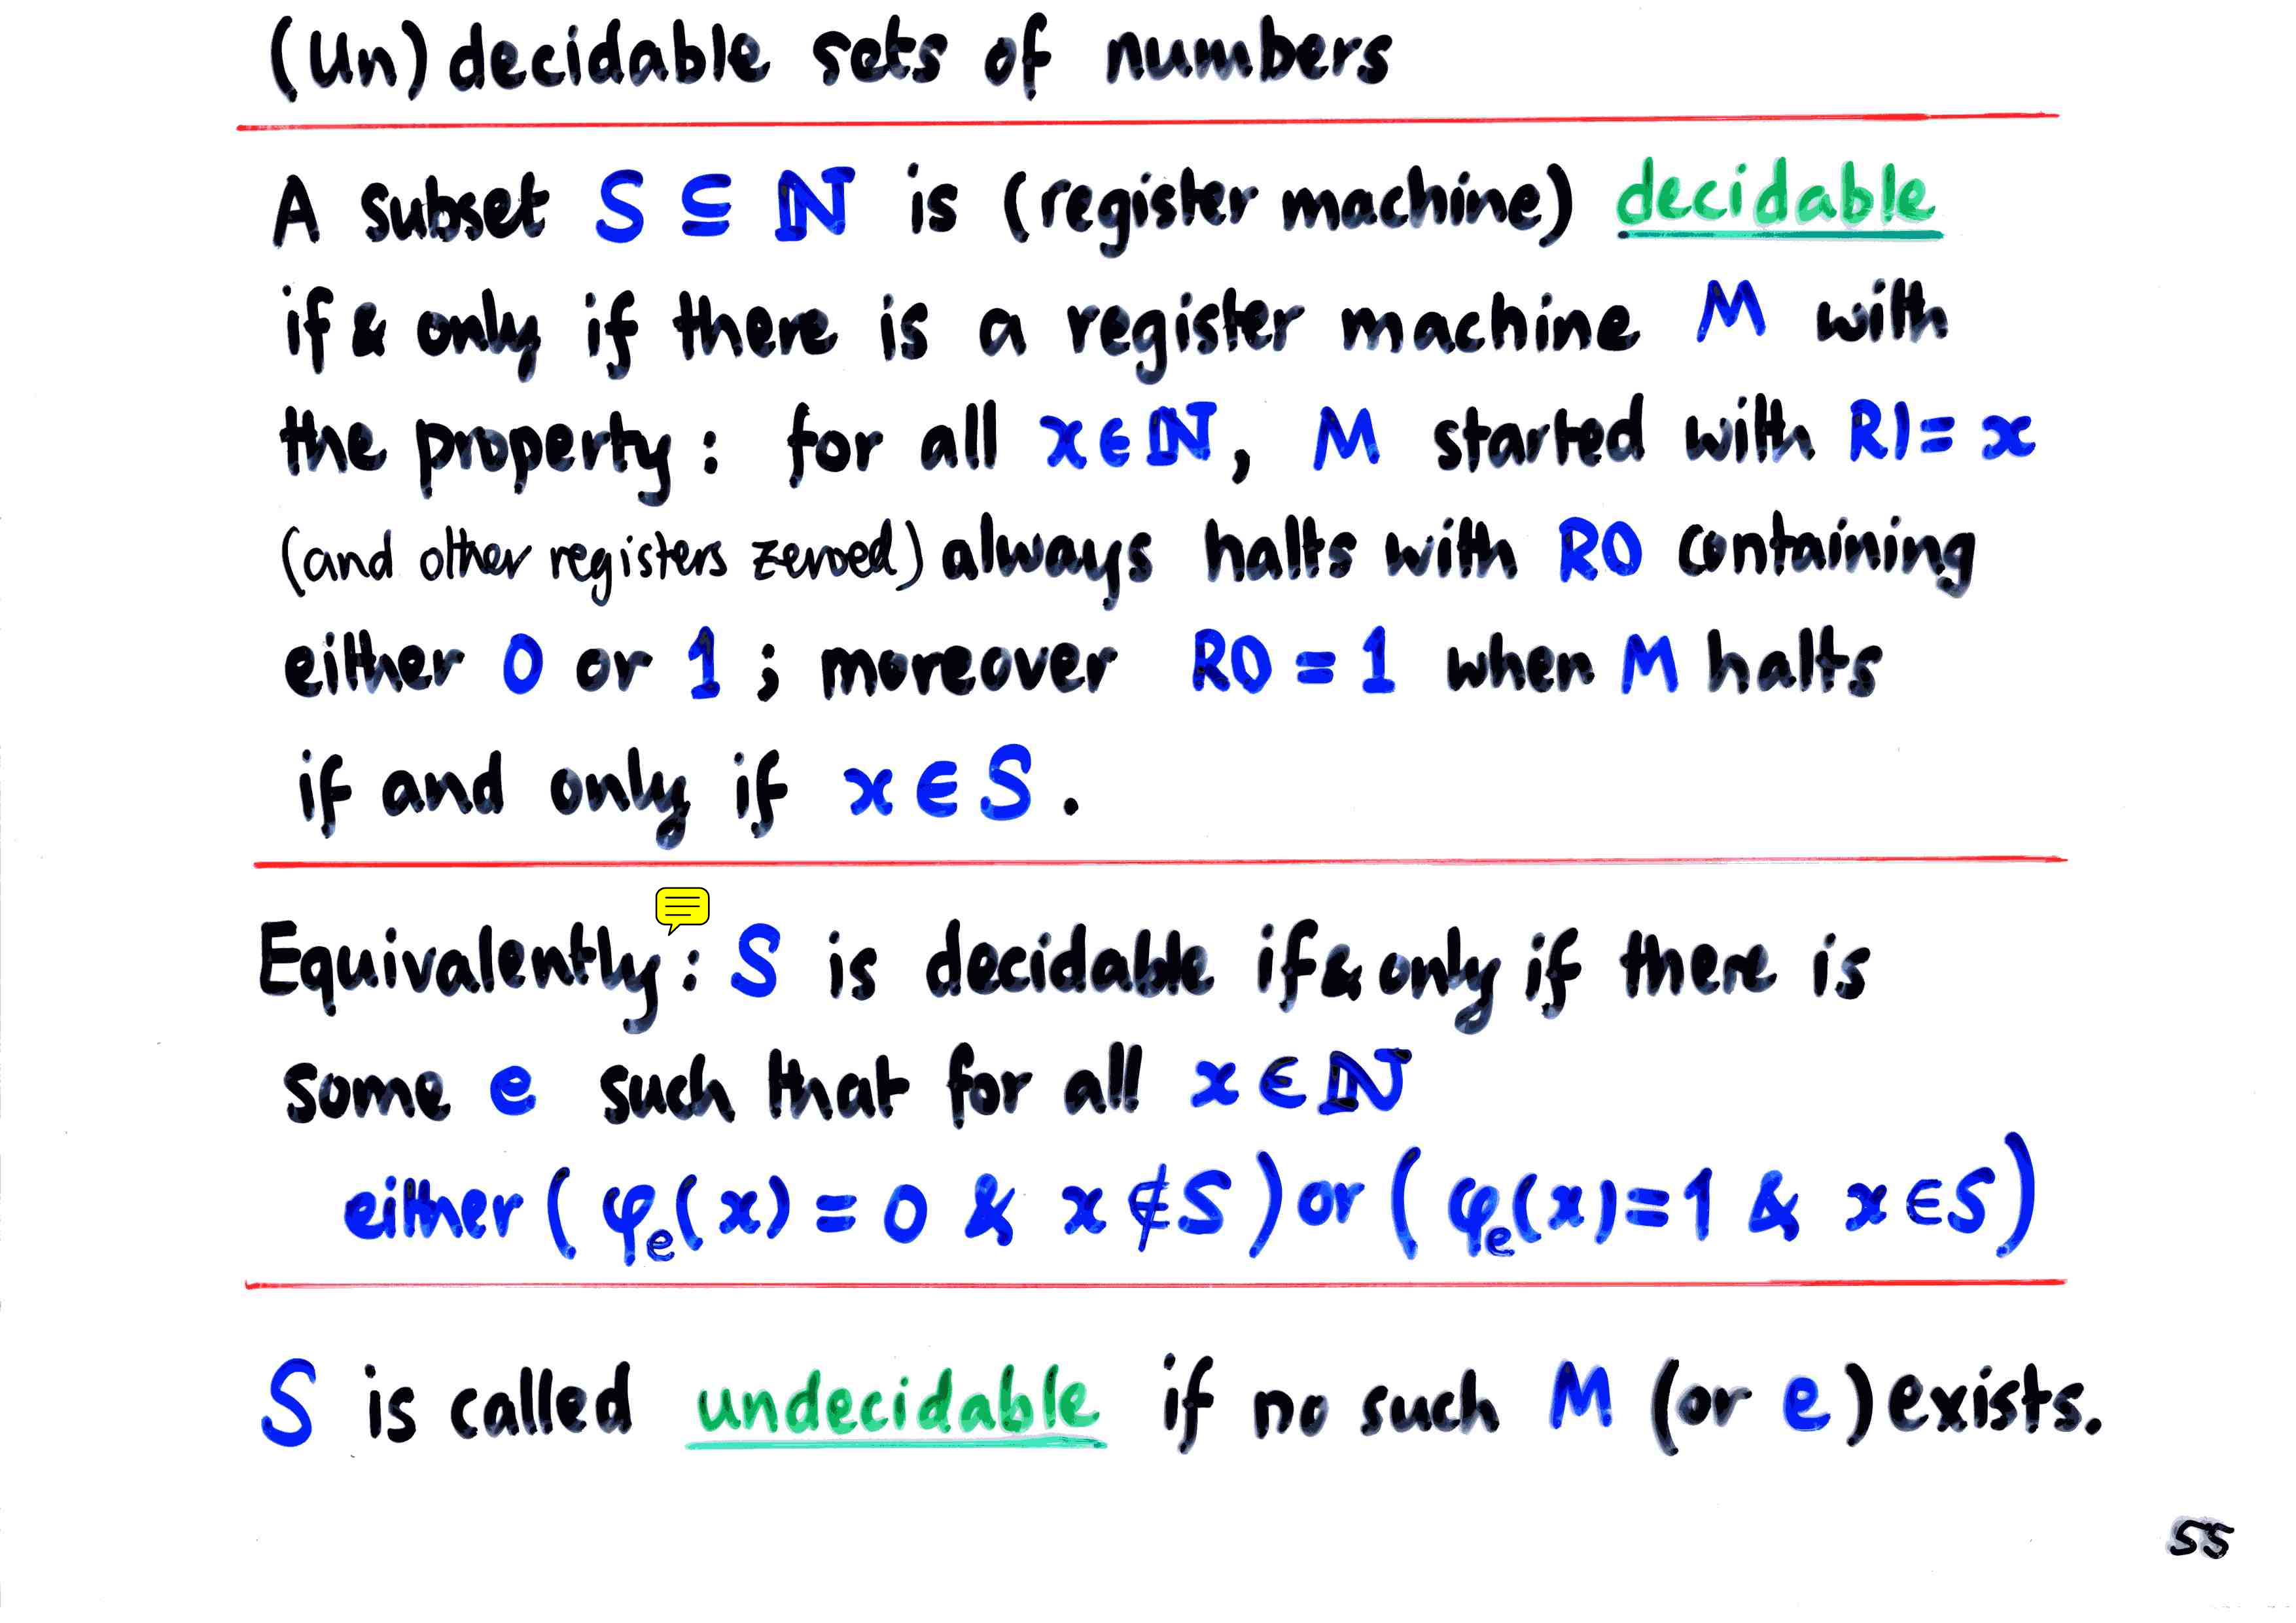 (Un)decidable sets of numbers
A subset S ⊆ ℕ is (register machine) decidable
if & only if there is a register machine M with
the property : for all x∈ℕ, M started with R1= x
(and other registers zeroed) always halts with R0 containing
either 0 or 1 ; moreover R0 = 1 when M halts
if and only if x ∈ S .
Equivalently : S is decidable if & only if there is
some e such that for all x ∈ ℕ
either ( φₑ(x) = 0 & x ∉ S ) or ( φₑ(x) = 1 & x ∈ S )
S is called undecidable if no such M (or e) exists.
55